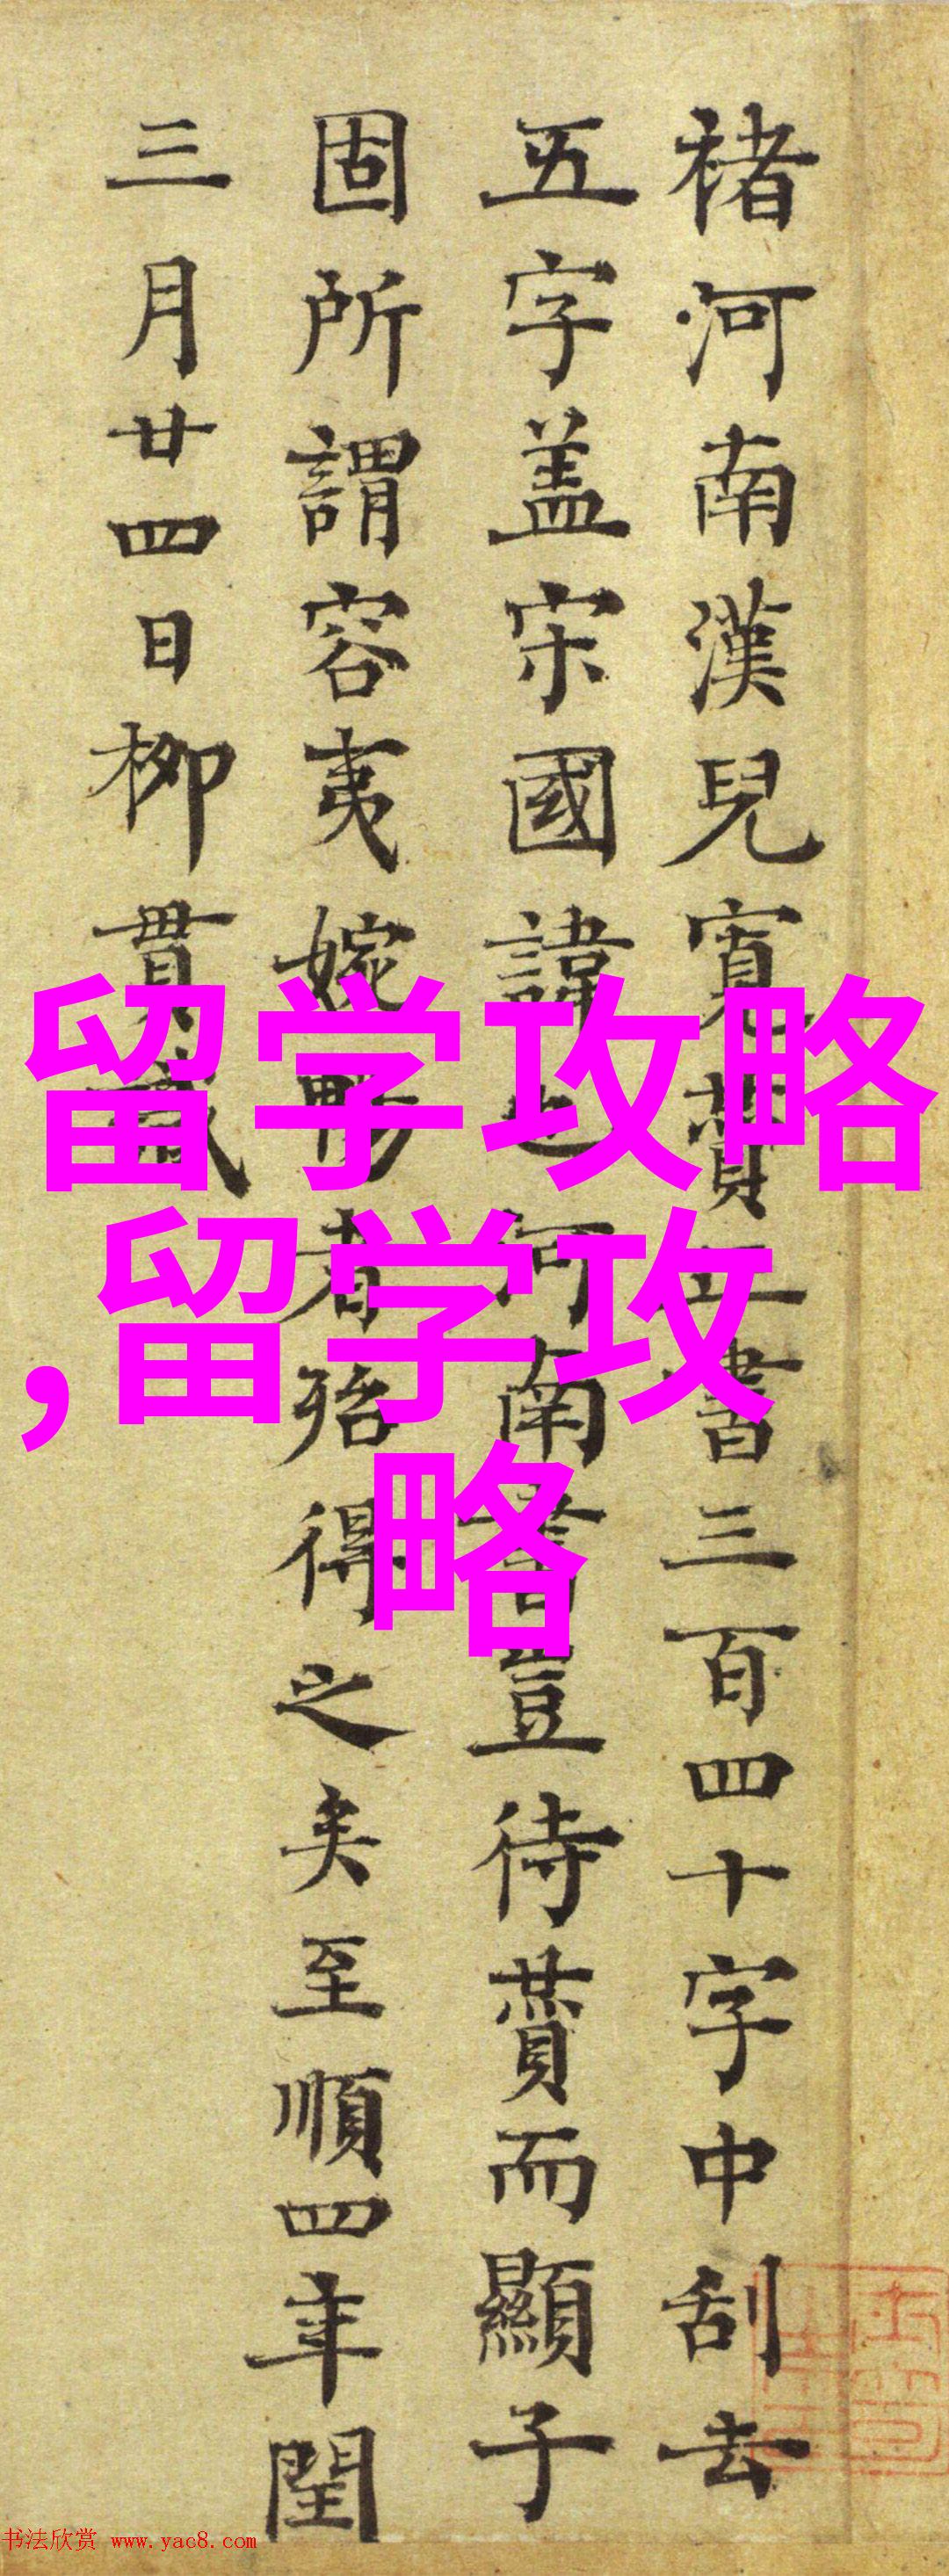 褚河南漢兒寬贊正書三百四十字中刮去
五字盖宋國諱也河南書豈待贊而顯子
固所謂容夷婉暢者殆得之矣至順四年閏
三月廿四日柳貫識
留学攻略
,留学攻
略
书法欣赏 www.yac8.com